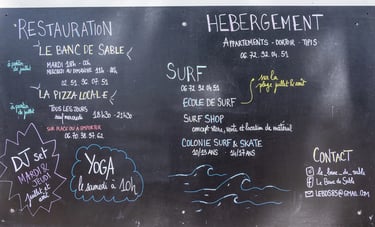 RESTAURATION
LE BANC DE SABLE
à partir de juillet
MARDI 18h - 00h
MERCREDI AU DIMANCHE 11h -
02 51 96 07 51
LA PIZZA LOCALE
à partir de juillet
TOUS LES JOURS
sauf mercredi 18h30 - 21h30
SUR PLACE OU A EMPORTER
06 70 98 57 62
DJ set
MARDI &
JEUDI
juillet et
août
YOGA
le samedi à 10h
HEBERGEMENT
APPARTEMENTS - DORTOIR - TIPIS
06 72 92 04 51
SURF
06 72 92 04 51
sur la
plage juillet & août
ECOLE DE SURF
SURF SHOP
concept store, vente et location de matériel
COLONIE SURF & SKATE
10/13 ANS - 14/17 ANS
CONTACT
le_banc_de_sable
Le Banc de Sable
LEBDS85@GMAIL.COM